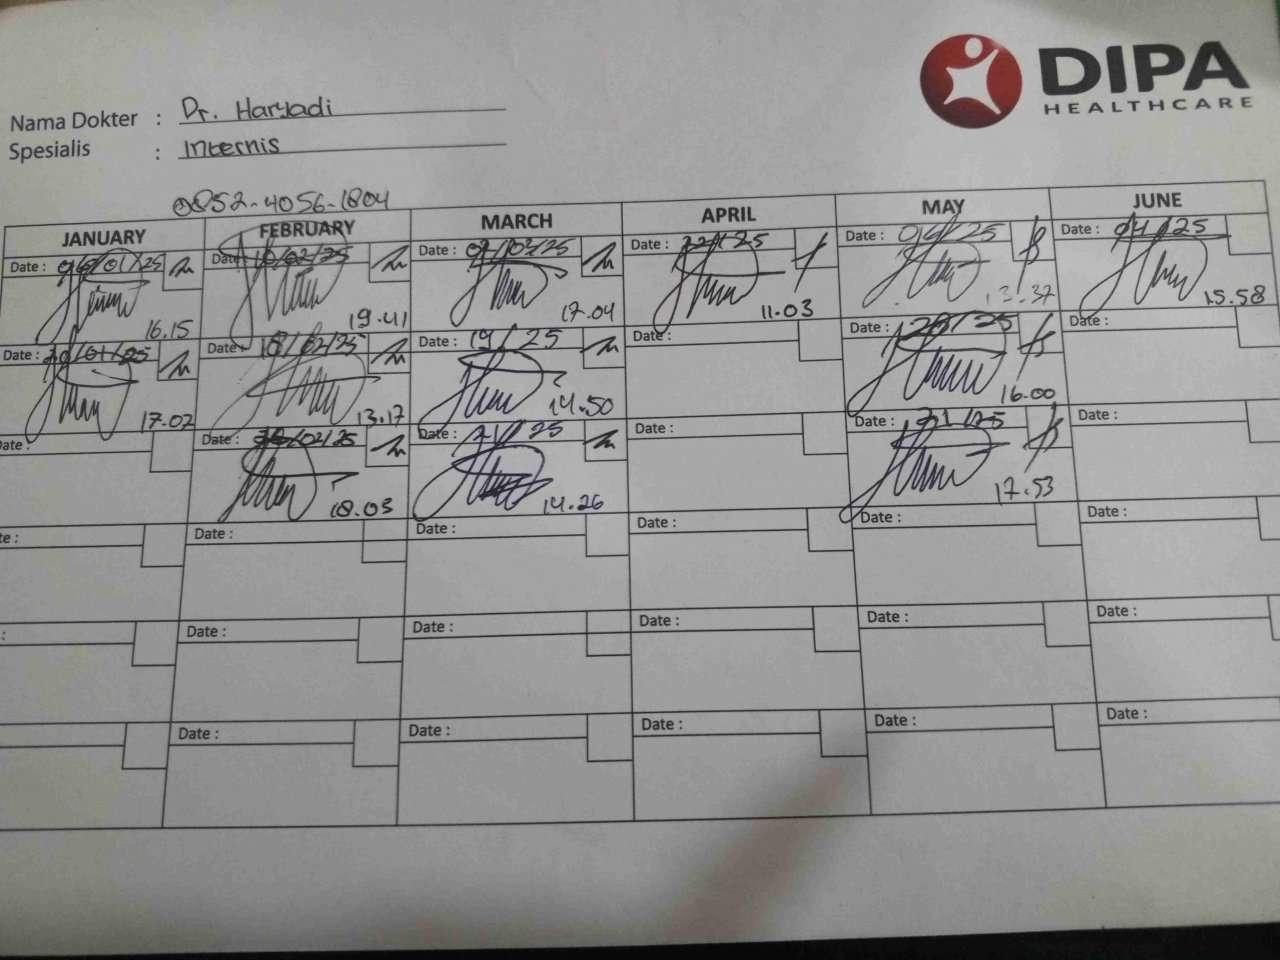 DIPA
HEALTHCARE
Nama Dokter : Dr. Haryadi
Spesialis : Internis
0852-4056-1804
JANUARY FEBRUARY MARCH APRIL MAY JUNE
Date : 06/01/25 Date : 10/02/25 Date : 07/03/25 Date : 22/25 Date : 09/25 Date : 04/25
16.15 19.41 17.04 11.03 13.37 15.58
Date : 20/01/25 Date : 18/02/25 Date : 19/25 Date : Date : 28/25 Date :
17.02 13.17 14.50 16.00
Date : Date : /02/25 Date : 21/25 Date : Date : 31/25 Date :
18.03 14.26 17.53
Date : Date : Date : Date : Date :
Date : Date : Date : Date : Date :
Date : Date : Date : Date : Date :